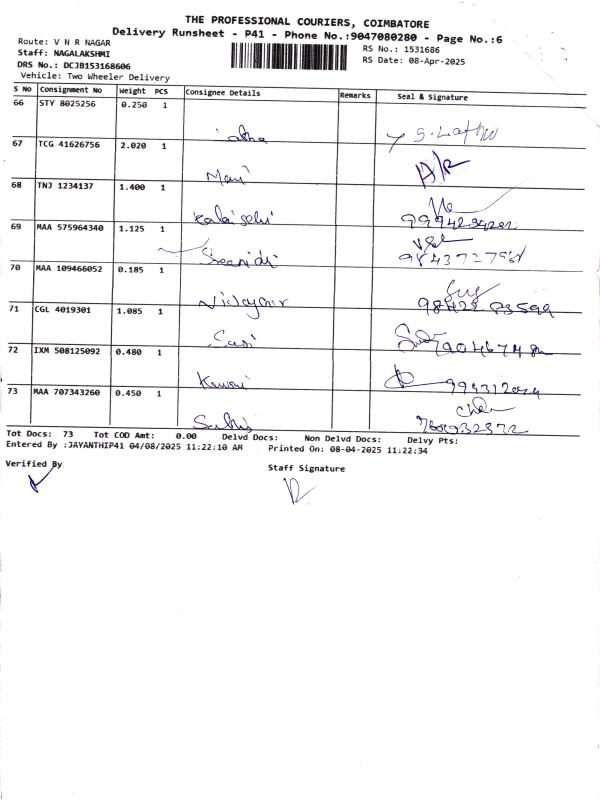 THE PROFESSIONAL COURIERS, COIMBATORE
Delivery Runsheet - P41 - Phone No.:9047080280 - Page No.:6
Route: V N R NAGAR
Staff: NAGALAKSHMI
DRS No.: DCJB153168606
Vehicle: Two Wheeler Delivery
RS No.: 1531686
RS Date: 08-Apr-2025
S No Consignment No Weight PCS Consignee Details Remarks Seal & Signature
66 STY 8025256 0.250 1
67 TCG 41626756 2.020 1
Mani
68 TNJ 1234137 1.400 1
Kalaiselvi
69 MAA 575964340 1.125 1
Sreenidi
70 MAA 109466052 0.185 1
71 CGL 4019301 1.085 1
Sasi
72 IXM 508125092 0.480 1
73 MAA 707343260 0.450 1
Tot Docs: 73 Tot COD Amt: 0.00 Delvd Docs: Non Delvd Docs: Delvy Pts:
Entered By :JAYANTHIP41 04/08/2025 11:22:10 AM Printed On: 08-04-2025 11:22:34
Verified By
Staff Signature